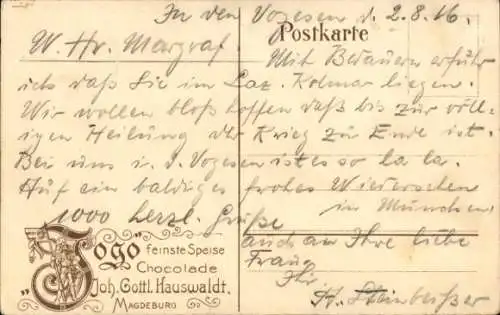 In den Vogesen d. 2.8.16.
Postkarte
W. Hr. Margraf.
Mit Bedauern erfuhr
ich daß Sie im Laz. Kolmar liegen.
Wir wollen bloß hoffen daß bis zur völl-
igen Heilung der Krieg zu Ende ist.
Bei uns i. d. Vogesen ist es so la la.
Auf ein baldiges frohes Wiedersehen
in München.
1000 herzl. Grüße
auch an Ihre liebe
Frau
Ihr
H.
"Togo"
feinste Speise
Chocolade
Joh. Gottl. Hauswaldt.
Magdeburg